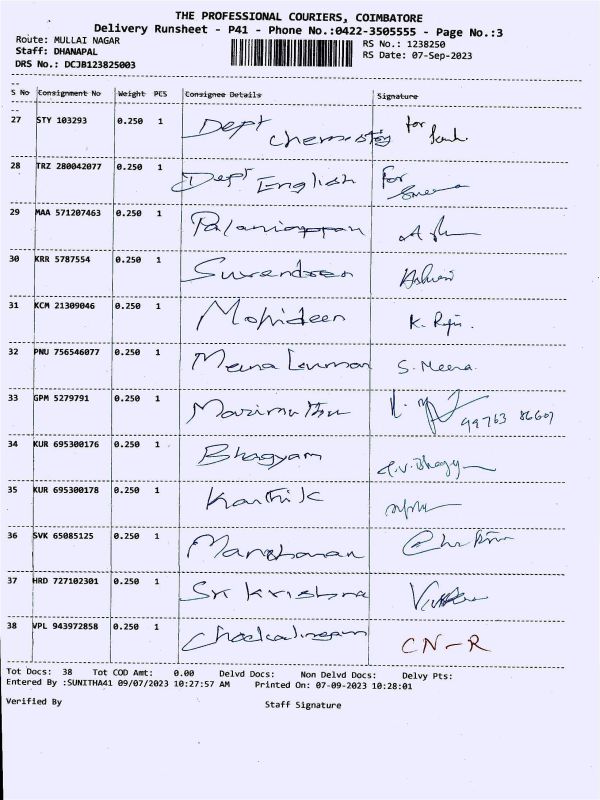 THE PROFESSIONAL COURIERS, COIMBATORE
Delivery Runsheet - P41 - Phone No.:0422-3505555 - Page No.:3
Route: MULLAI NAGAR RS No.: 1238250
Staff: DHANAPAL RS Date: 07-Sep-2023
DRS No.: DCJB123825003
S No Consignment No Weight PCS Consignee Details Signature
27 STY 103293 0.250 1 Dept chemistry for
28 TRZ 280042077 0.250 1 Dept English For
29 MAA 571207463 0.250 1 Palaniappan
30 KRR 5787554 0.250 1 Surendren
31 KCM 21309046 0.250 1 Mohideen K. Raju.
32 PNU 756546077 0.250 1 Meena S. Meena.
33 GPM 5279791 0.250 1 Marimuthu 99763 86607
34 KUR 695300176 0.250 1 Bhagyam
35 KUR 695300178 0.250 1 Karthik
36 SVK 65085125 0.250 1 Manoharan
37 HRD 727102301 0.250 1 Sri Krishna
38 VPL 943972858 0.250 1 Chockalingam CN-R
Tot Docs: 38 Tot COD Amt: 0.00 Delvd Docs: Non Delvd Docs: Delvy Pts:
Entered By :SUNITHA41 09/07/2023 10:27:57 AM Printed On: 07-09-2023 10:28:01
Verified By Staff Signature